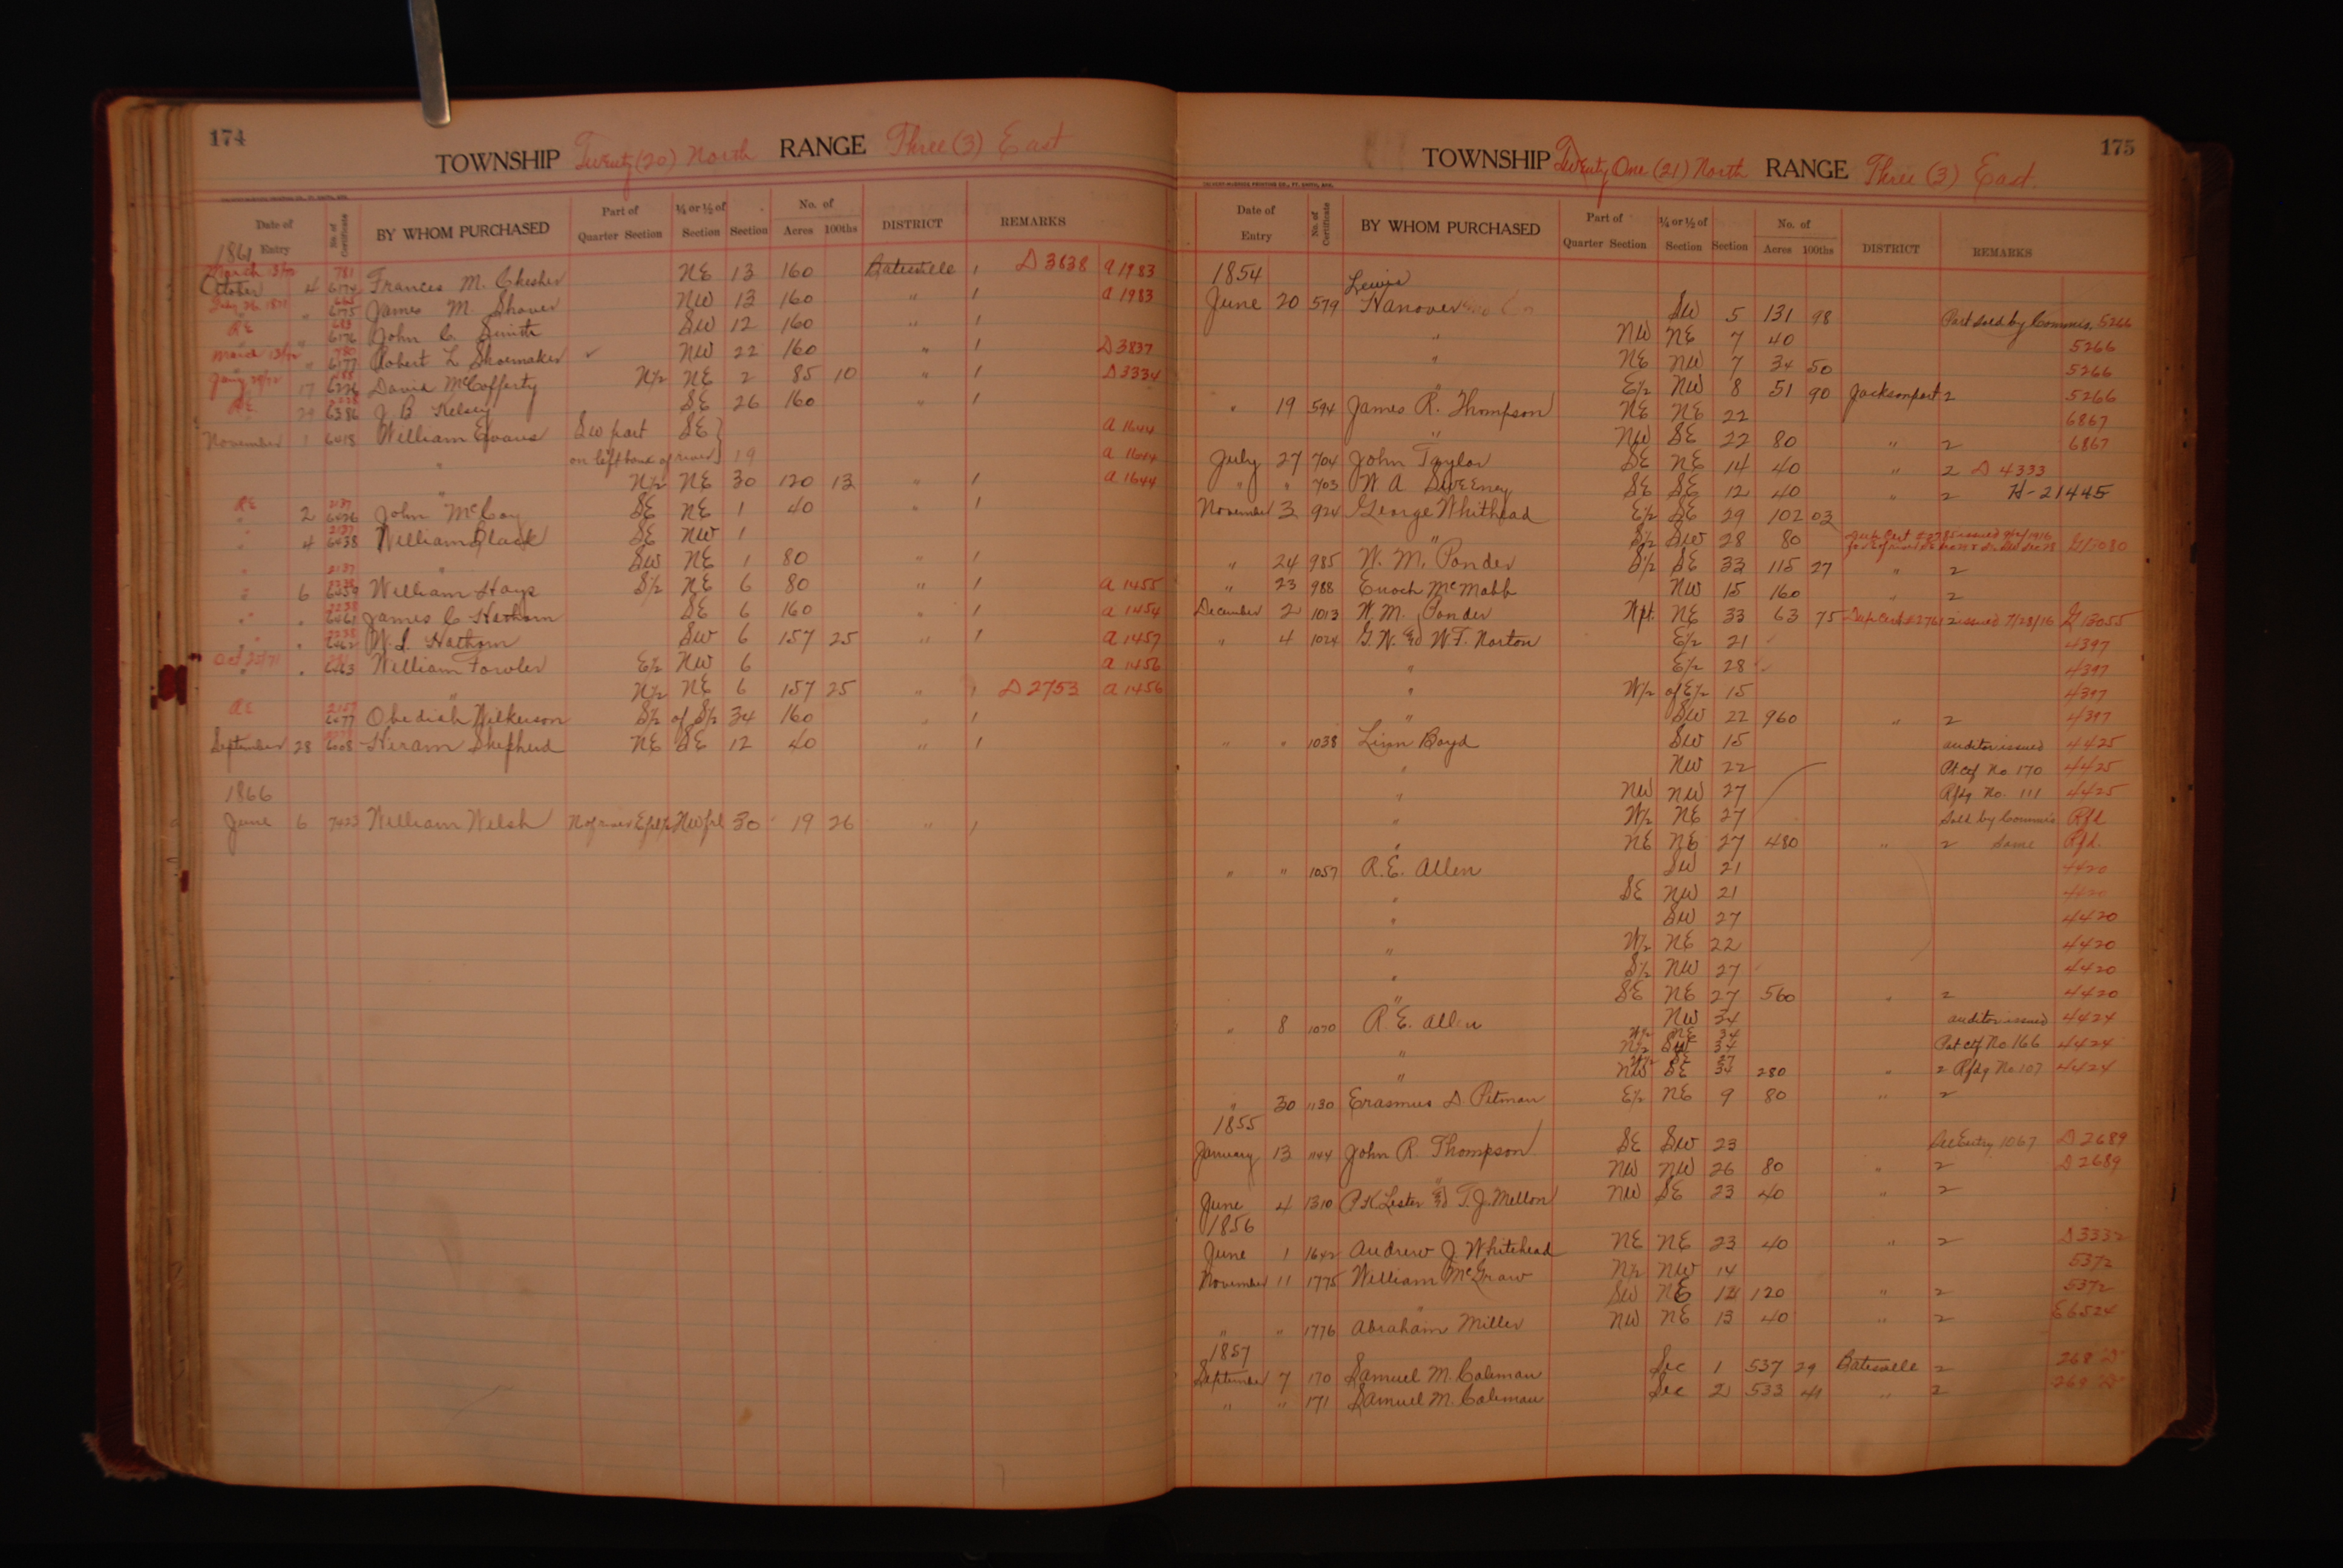 174
TOWNSHIP Twenty (20) North RANGE Three (3) East
Date of Entry No. of Certificate BY WHOM PURCHASED Part of Quarter Section ¼ or ½ of Section Section No. of Acres 100ths DISTRICT REMARKS
1861
March 781
October 4 6174 Frances M. Chesher NE 13 160 Batesville 1 D 3638 a 1983
6175 James M. Shaver NW 13 160 " 1 a 1983
RE
" 6176 John C. Smith SW 12 160 " 1
March 780
" 6177 Robert L Shoemaker NW 22 160 " 1 D 3837
17 David McCofferty N½ NE 2 85 10 " 1 D 3334
RE
29 6386 J. B. Kelsey SE 26 160 " 1
November 1 6418 William Evans SW part SE a 1644
" on left bank of river 19 a 1644
" N½ NE 30 120 13 " 1 a 1644
RE 2137
" 2 6426 John McCoy SE NE 1 40 " 1
2137
" 4 6438 William Black SE NW 1
" SW NE 1 80 " 1
2137
" 6 William Hays S½ NE 6 80 " 1 a 1455
2238
" " 6461 James C. Hathorn SE 6 160 " 1 a 1454
" " 6462 W. S. Hathorn SW 6 157 25 " 1 a 1457
" " 6463 William Fowler E½ NW 6 a 1456
" N½ NE 6 157 25 " 1 D 2753 a 1456
RE
6477 Obediah Wilkerson S½ of S½ 34 160 " 1
September 28 6608 Hiram Shepherd NE SE 12 40 " 1
1866
June 6 7423 William Welsh N of river E frl ½ NW frl 30 19 26 " 1
175
TOWNSHIP Twenty One (21) North RANGE Three (3) East.
Date of Entry No. of Certificate BY WHOM PURCHASED Part of Quarter Section ¼ or ½ of Section Section No. of Acres 100ths DISTRICT REMARKS
1854 Lewis
June 20 579 Hanover SW 5 131 98 Part sold by Commis. 5266
" NW NE 7 40 5266
" NE NW 7 34 50 5266
" E½ NW 8 51 90 Jacksonport 2 5266
" 19 594 James R. Thompson NE NE 22 6867
" NW SE 22 80 " 2 6867
July 27 704 John Taylor SE NE 14 40 " 2 D 4333
" " 703 W A Sweeney SE SE 12 40 " 2 H-21445
November 3 924 George Whithead E½ SE 29 102 03
" S½ SW 28 80
" 24 985 W. M. Ponder S½ SE 33 115 27 " 2
" 23 988 Enoch McMabb NW 15 160 " 2
December 2 1013 W. M. Ponder N pt. NE 33 63 75 Dup Cert # 2761 issued 7/28/16 G 13055
" 4 1024 G. W. & W. F. Norton E½ 21 4397
" E½ 28 4397
" W½ of E½ 15 4397
" SW 22 960 " 2 4397
" " 1038 Linn Boyd SW 15 auditor issued 4425
" NW 22 Pt Ctf No 170 4425
" NW NW 27 Rfdg No. 111 4425
" W½ NE 27 Sold by Commis Rfd
" NE NE 27 480 " 2 Same Rfd.
" " 1057 R. E. Allen SW 21 4420
" SE NW 21 4420
" SW 27 4420
" W½ NE 22 4420
" S½ NW 27 4420
" SE NE 27 560 " 2 4420
" 8 1070 R. E. Allen NW 34 auditor issued 4424
W½ NE 34
" N½ SW 34 Pat ctf No 166 4424
" NW SE 34 280 " 2 Rfdg No 107 4424
" 30 1130 Erasmus D Pitman E½ NE 9 80 " 2
1855
January 13 1144 John R. Thompson SE SW 23 See Entry 1067 D 2689
" NW NW 26 80 " 2 D 2689
June 4 1310 P. K Lester & T. J. Mellon NW SE 23 40 " 2
1856
June 1 1642 Andrew J. Whitehead NE NE 23 40 " 2 D 3332
November 11 1775 William McGraw N½ NW 14 5372
" SW NE 14 120 " 2 5372
" " 1776 Abraham Miller NW NE 13 40 " 2 E6524
1857
September 7 170 Samuel M. Coleman Sec 1 537 29 Batesville 2 268 "D"
" " 171 Samuel M. Coleman Sec 2 533 41 " 2 269 "D"